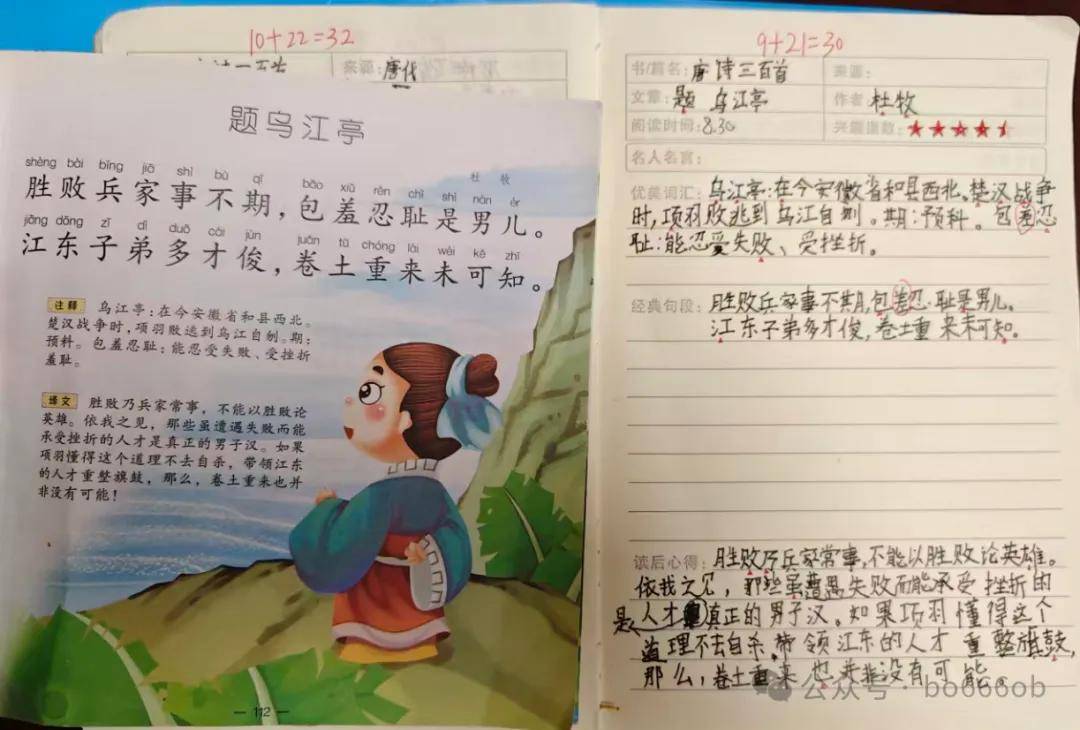 10+22=32
来源：唐代
题乌江亭
杜牧
shèng bài bīng jiā shì bù qī
bāo xiū rěn chǐ shì nán ér
胜败兵家事不期，包羞忍耻是男儿。
jiāng dōng zǐ dì duō cái jùn
juǎn tǔ chóng lái wèi kě zhī
江东子弟多才俊，卷土重来未可知。
注释 乌江亭：在今安徽省和县西北。
楚汉战争时，项羽败逃到乌江自刎。期：
预料。包羞忍耻：能忍受失败、受挫折
羞耻。
译文 胜败乃兵家常事，不能以胜败论
英雄。依我之见，那些虽遭遇失败而能
承受挫折的人才是真正的男子汉。如果
项羽懂得这个道理不去自杀，带领江东
的人才重整旗鼓，那么，卷土重来也并
非没有可能！
112
9+21=30
书/篇名：唐诗三百首 来源：
文章：题乌江亭 作者：杜牧
阅读时间：8.30 兴趣指数：
名人名言：
优美词汇：乌江亭：在今安徽省和县西北。楚汉战争
时，项羽败逃到乌江自刎。期：预料。包羞忍
耻：能忍受失败、受挫折。
经典句段：胜败兵家事不期，包羞忍耻是男儿。
江东子弟多才俊，卷土重来未可知。
读后心得：胜败乃兵家常事，不能以胜败论英雄。
依我之见，那些虽遭遇失败而能承受挫折的
人才是真正的男子汉。如果项羽懂得这个
道理不去自杀，带领江东的人才重整旗鼓，
那么，卷土重来也并非没有可能。
公众号·bo666ob